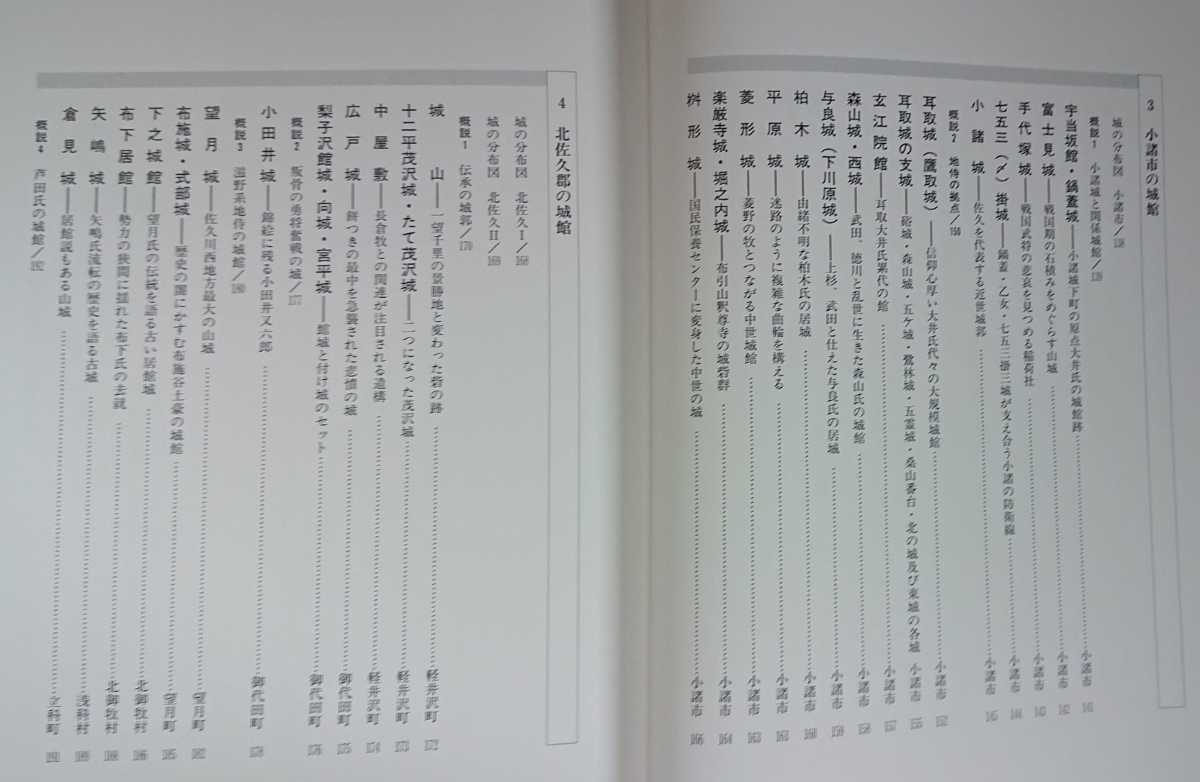 3 小諸市の城館
城の分布図 小諸市/138
概説1 小諸城と関係城館/139
宇当坂館・鍋蓋城――小諸城下町の原点大井氏の城館跡……小諸市 141
富士見城――戦国期の石積みをめぐらす山城……小諸市 142
手代塚城――戦国武将の悲哀を見つめる稲荷社……小諸市
七五三(〆)掛城――鍋蓋・乙女・七五三掛三城が支え合う小諸の防衛線……小諸市 144
小諸城――佐久を代表する近世城郭……小諸市 145
概説2 地侍の拠点/150
耳取城(鷹取城)――信仰心厚い大井氏代々の大規模城館……小諸市 152
耳取城の支城――硲城・森山城・五ケ城・鷺林城・五霊城・桑山番台・北の城及び東城の各城 小諸市 153
玄江院館――耳取大井氏累代の館……小諸市
森山城・西城――武田、徳川と乱世に生きた森山氏の城館……小諸市
与良城(下川原城)――上杉、武田と仕えた与良氏の居城……小諸市
柏木城――由緒不明な柏木氏の居城……小諸市 160
平原城――迷路のように複雑な曲輪を構える……小諸市
菱形城――菱野の牧とつながる中世城郭……小諸市
楽巌寺城・堀之内城――布引山釈尊寺の城砦群……小諸市 164
桝形城――国民保養センターに変身した中世の城……小諸市 166
4 北佐久郡の城館
城の分布図 北佐久I/168
城の分布図 北佐久II/169
概説1 伝承の城郭/170
城山――一望千里の景勝地と変わった砦の跡……軽井沢町 172
十二平茂沢城・たて茂沢城――二つになった茂沢城……軽井沢町 173
中屋敷――長倉牧との関連が注目される遺構……軽井沢町 174
広戸城――餅つきの最中を急襲された悲憤の城……御代田町 175
梨子沢館城・向城・宮平城――館城と付け城のセット……御代田町 176
概説2 叛骨の勇将奮戦の城/177
小田井城――錦絵に残る小田井又六郎……御代田町 178
概説3 滋野系地侍の城館/180
望月城――佐久川西地方最大の山城……望月町 182
布施城・式部城――歴史の闇にかすむ布施谷土豪の城館……望月町 185
下之城館――望月氏の伝統を語る古い居館城……北御牧村 186
布下居館――勢力の狭間に揺れた布下氏の去就……北御牧村 188
矢嶋城――矢嶋氏流転の歴史を語る古城……浅科村 189
倉見城――居館説もある山城……立科町 191
概説4 芦田氏の城館/192